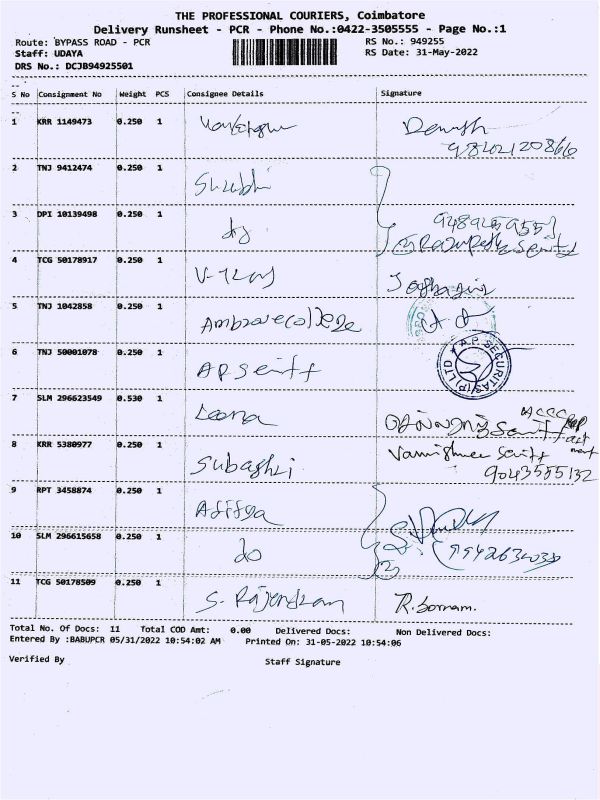 THE PROFESSIONAL COURIERS, Coimbatore
Delivery Runsheet - PCR - Phone No.:0422-3505555 - Page No.:1
Route: BYPASS ROAD - PCR RS No.: 949255
Staff: UDAYA RS Date: 31-May-2022
DRS No.: DCJB94925501
S No Consignment No Weight PCS Consignee Details Signature
1 KRR 1149473 0.250 1
2 TNJ 9412474 0.250 1
3 DPI 10139498 0.250 1 do
4 TCG 50178917 0.250 1
5 TNJ 1042858 0.250 1 Ambrove college
6 TNJ 50001078 0.250 1 AP Seriff
A.P. SECURITAS (P) LTD
7 SLM 296623549 0.530 1 Leena
8 KRR 5380977 0.250 1 Subashri
9043555132
9 RPT 3458874 0.250 1 Aditya
10 SLM 296615658 0.250 1 do
11 TCG 50178509 0.250 1 S. Rajendran R. Sornam.
Total No. Of Docs: 11 Total COD Amt: 0.00 Delivered Docs: Non Delivered Docs:
Entered By :BABUPCR 05/31/2022 10:54:02 AM Printed On: 31-05-2022 10:54:06
Verified By Staff Signature